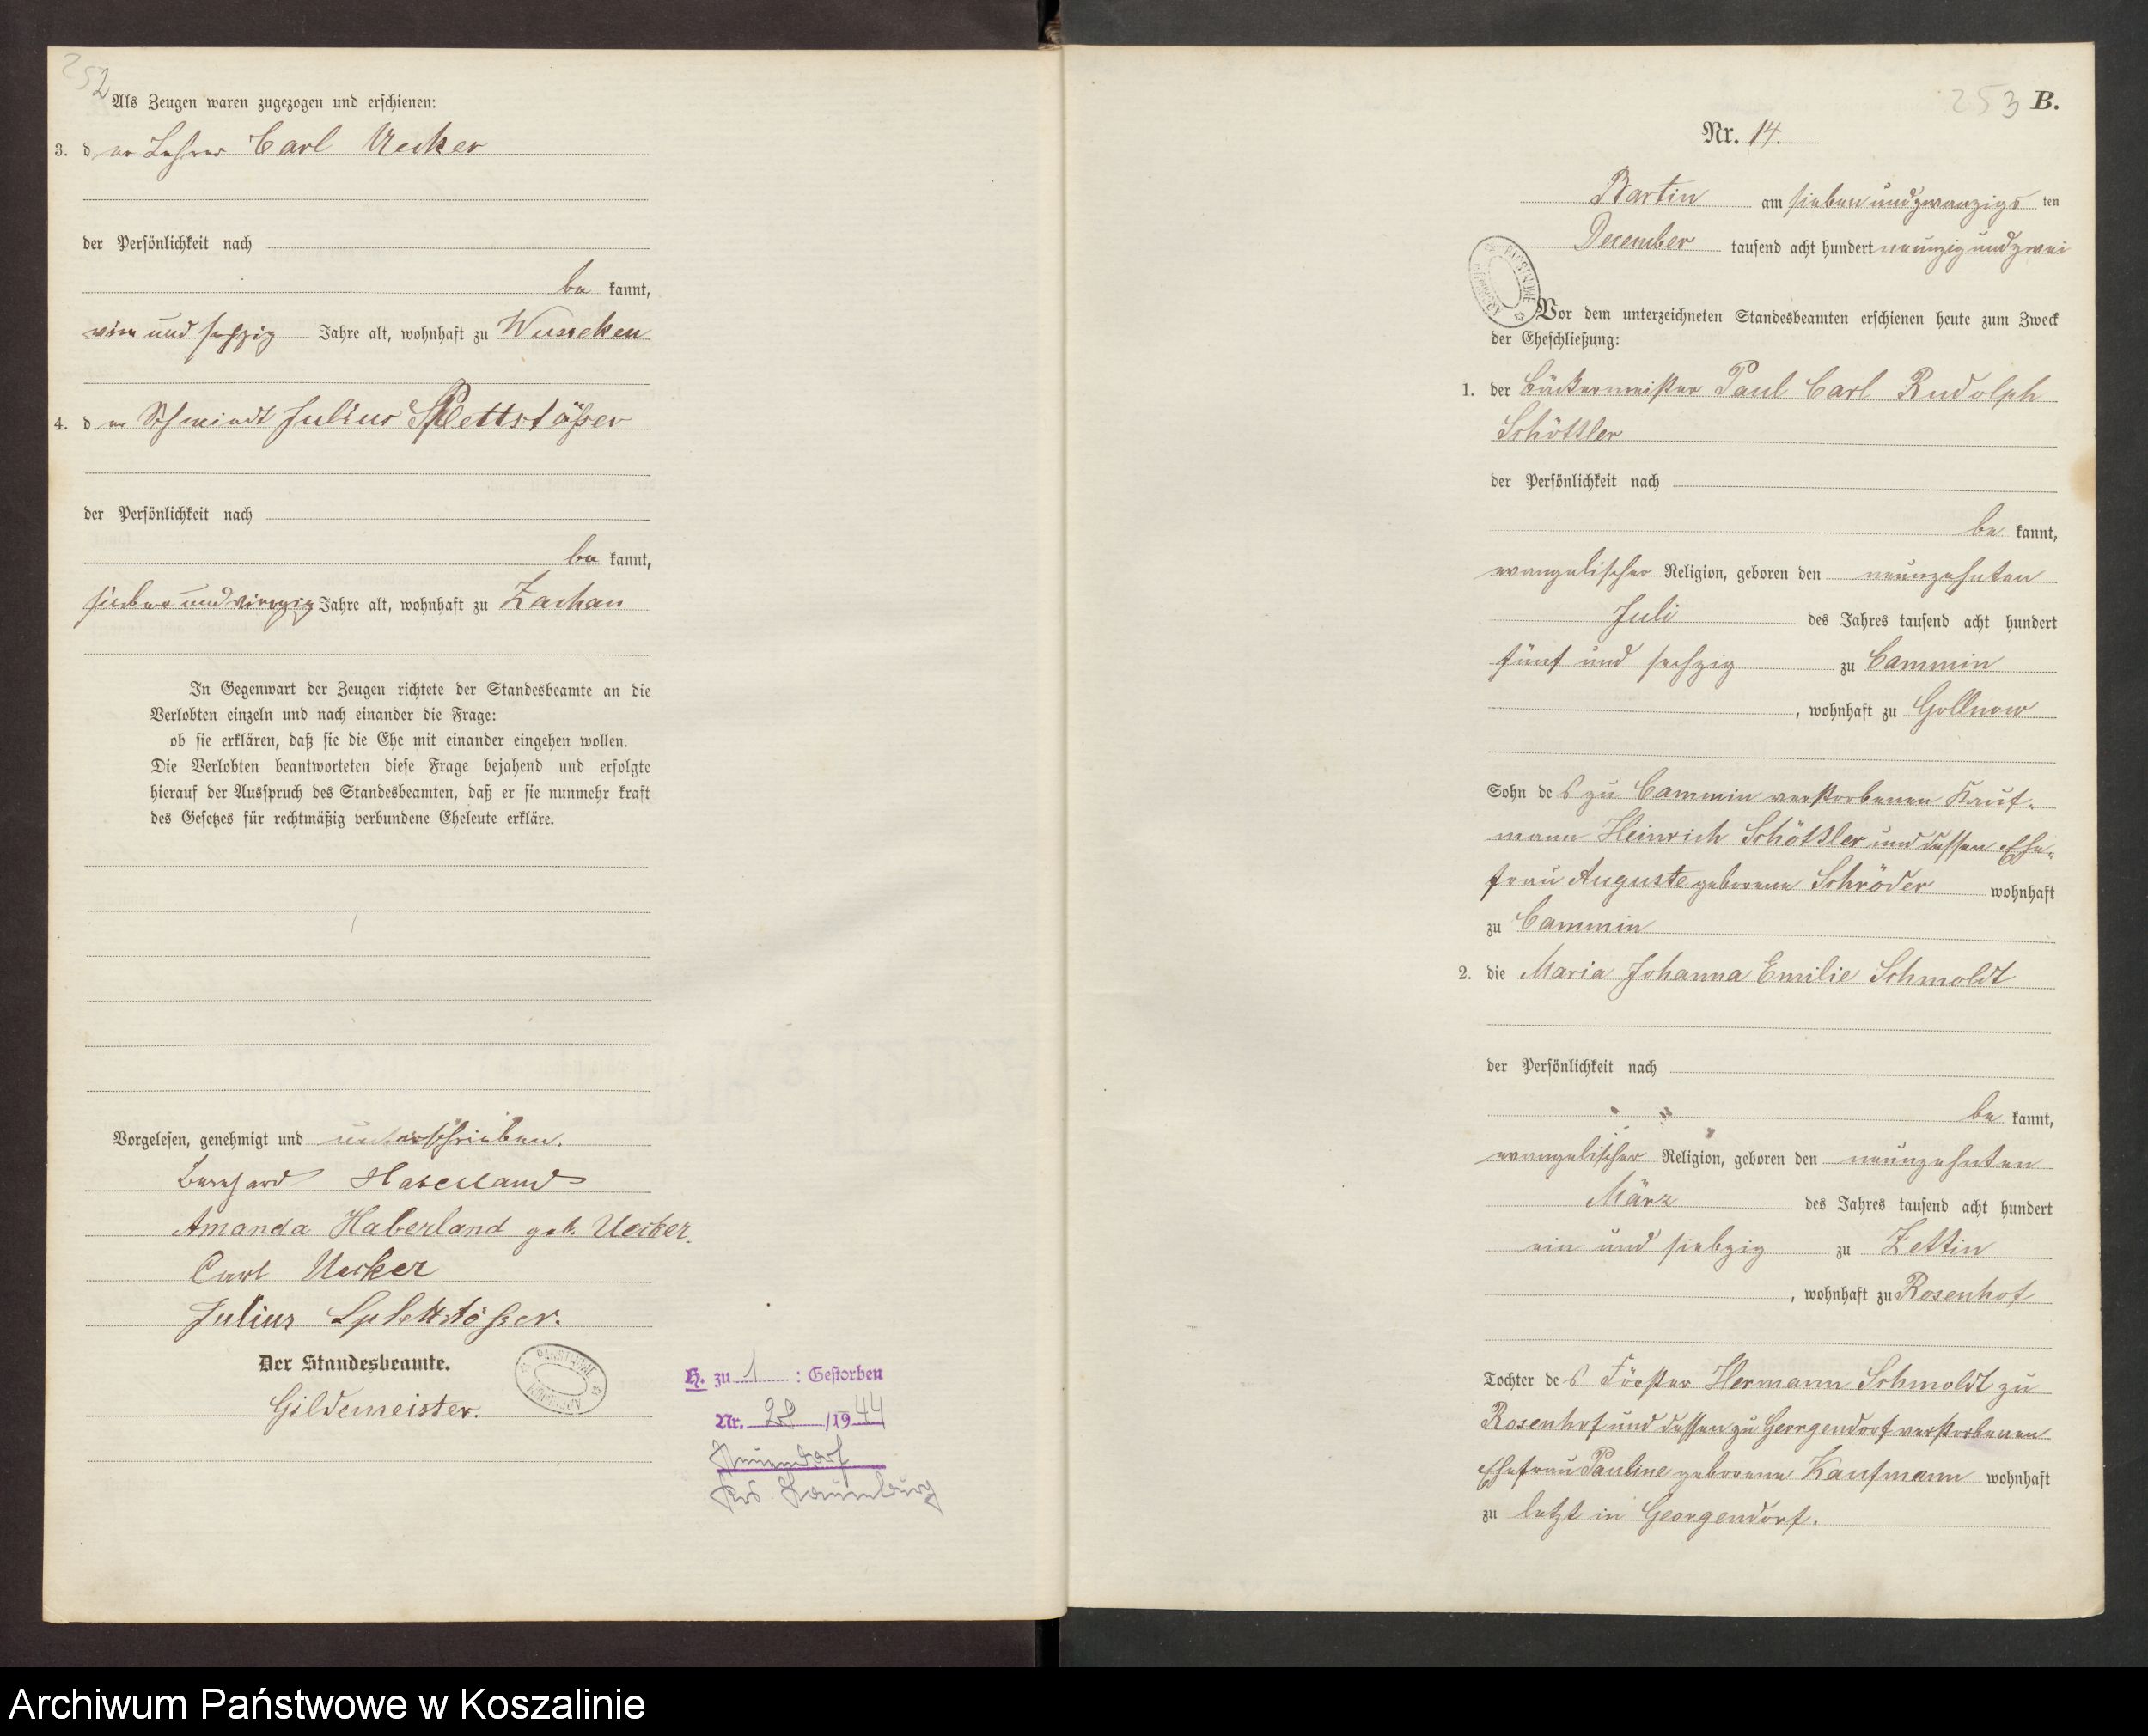 252
Als Zeugen waren zugezogen und erschienen:
3. der Lehrer Carl Uecker
der Persönlichkeit nach
be kannt,
ein und sechzig Jahre alt, wohnhaft zu Wussecken
4. der Schmiedt Julius Splettstößer
der Persönlichkeit nach
be kannt,
sieben und vierzig Jahre alt, wohnhaft zu Zachan
In Gegenwart der Zeugen richtete der Standesbeamte an die
Verlobten einzeln und nach einander die Frage:
ob sie erklären, daß sie die Ehe mit einander eingehen wollen.
Die Verlobten beantworteten diese Frage bejahend und erfolgte
hierauf der Ausspruch des Standesbeamten, daß er sie nunmehr kraft
des Gesetzes für rechtmäßig verbundene Eheleute erkläre.
Vorgelesen, genehmigt und unterschrieben.
Bernhard Haberland
Amanda Haberland geb. Uecker.
Carl Uecker
Julius Splettstößer.
Der Standesbeamte.
Gildemeister.
H. zu 1 : Gestorben
Nr. 28 /1944
Neuendorf
Krs. Lauenburg
253 B.
Nr. 14.
Bartin am sieben und zwanzigs ten
December tausend acht hundert neunzig und zwei
Vor dem unterzeichneten Standesbeamten erschienen heute zum Zweck
der Eheschließung:
1. der Bäckermeister Paul Carl Rudolph
Schöttler
der Persönlichkeit nach
be kannt,
evangelischer Religion, geboren den neunzehnten
Juli des Jahres tausend acht hundert
fünf und sechzig zu Cammin
, wohnhaft zu Gollnow
Sohn des zu Cammin verstorbenen Kauf-
mann Heinrich Schöttler und dessen Ehe-
frau Auguste geborene Schröder wohnhaft
zu Cammin
2. die Maria Johanna Emilie Schmoldt
der Persönlichkeit nach
be kannt,
evangelischer Religion, geboren den neunzehnten
März des Jahres tausend acht hundert
ein und siebzig zu Zettin
, wohnhaft zu Rosenhof
Tochter des Förster Hermann Schmoldt zu
Rosenhof und dessen zu Georgendorf verstorbenen
Ehefrau Pauline geborene Kaufmann wohnhaft
zu letzt in Georgendorf.
Archiwum Państwowe w Koszalinie